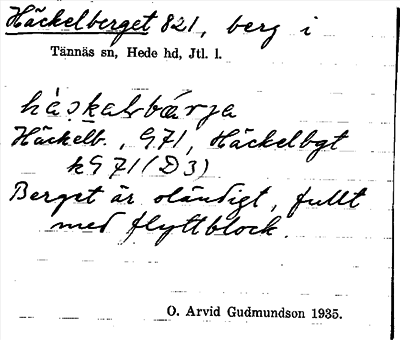 Häckelberget 821, berg i
Tännäs sn, Hede hd, Jtl. l.
hàs̩kal𝑏bǽrja
Häckelb., G71, Häckelbgt
kG71 (D3)
Berget är oländigt, fullt
med flyttblock.
O. Arvid Gudmundson 1935.